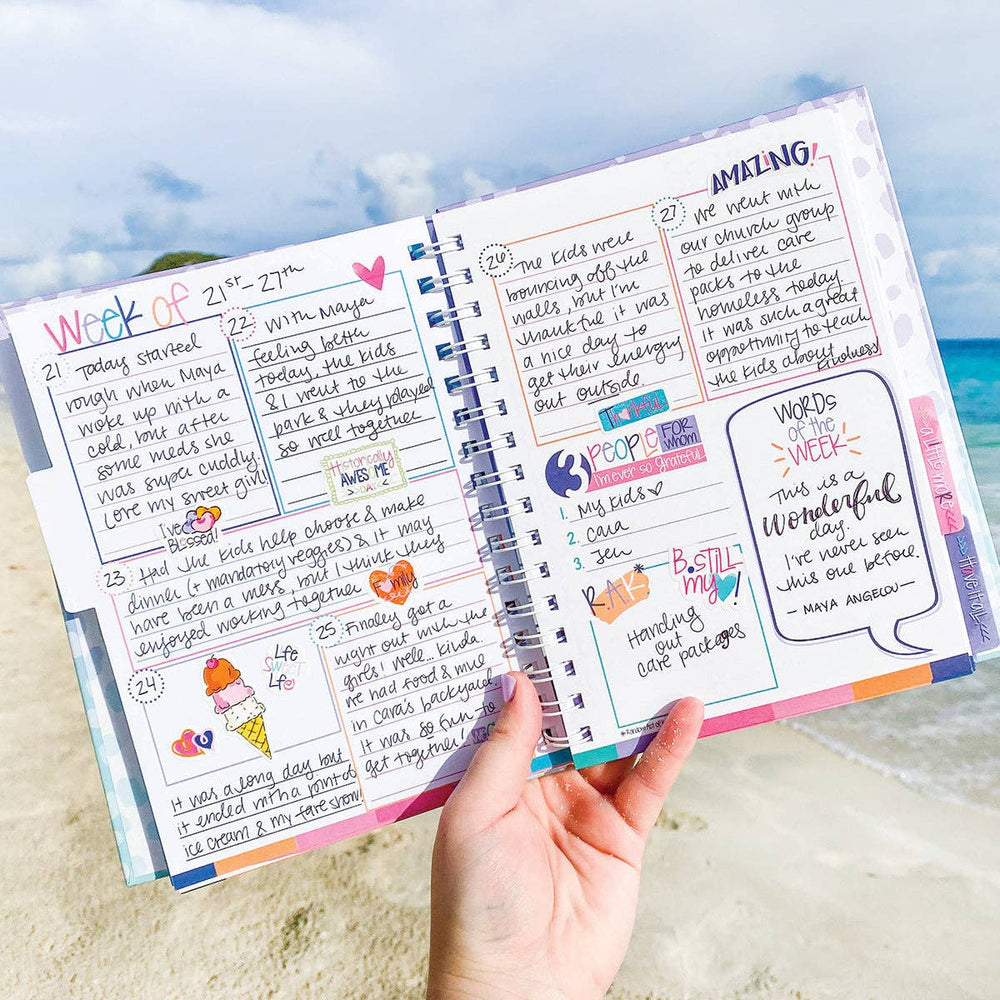 week of 21ST-27TH
21 Today started
rough when Maya
woke up with a
cold, but after
some meds she
was super cuddly.
Love my sweet girl!
I've
Blessed!
22 With Maya
feeling better
today, the kids
& I went to the
park & they played
so well together
Historically
AWESOME
DAY
23 Had the kids help choose & make
dinner (+ mandatory veggies) & it may
have been a mess, but I think they
enjoyed working together
Family
24
Life
SWEET
Life
It was a long day but
it ended with a pint of
ice cream & my fave show.
25 Finaley got a
night out with the
girls! Well... kinda.
We had food &
in Cara's backyard.
It was so fun to
get together!
26 The kids were
bouncing off the
walls, but I'm
thankful it was
a nice day to
get their energy
out outside.
Thankful
AMAZING!
27 We went with
our church group
to deliver care
packs to the
homeless today.
It was such a great
opportunity to teach
the kids about
kindness
3 PEOPLE FOR whom
I'm ever so grateful
1. My kids ♡
2. Cara
3. Jen
R.A.K
B.STILL
MY !
Handing
out
care packages
WORDS
of the
WEEK
This is a
wonderful
day.
I've never seen
this one before.
— MAYA ANGELOU —
>>a little more<<
>>Have it all<<